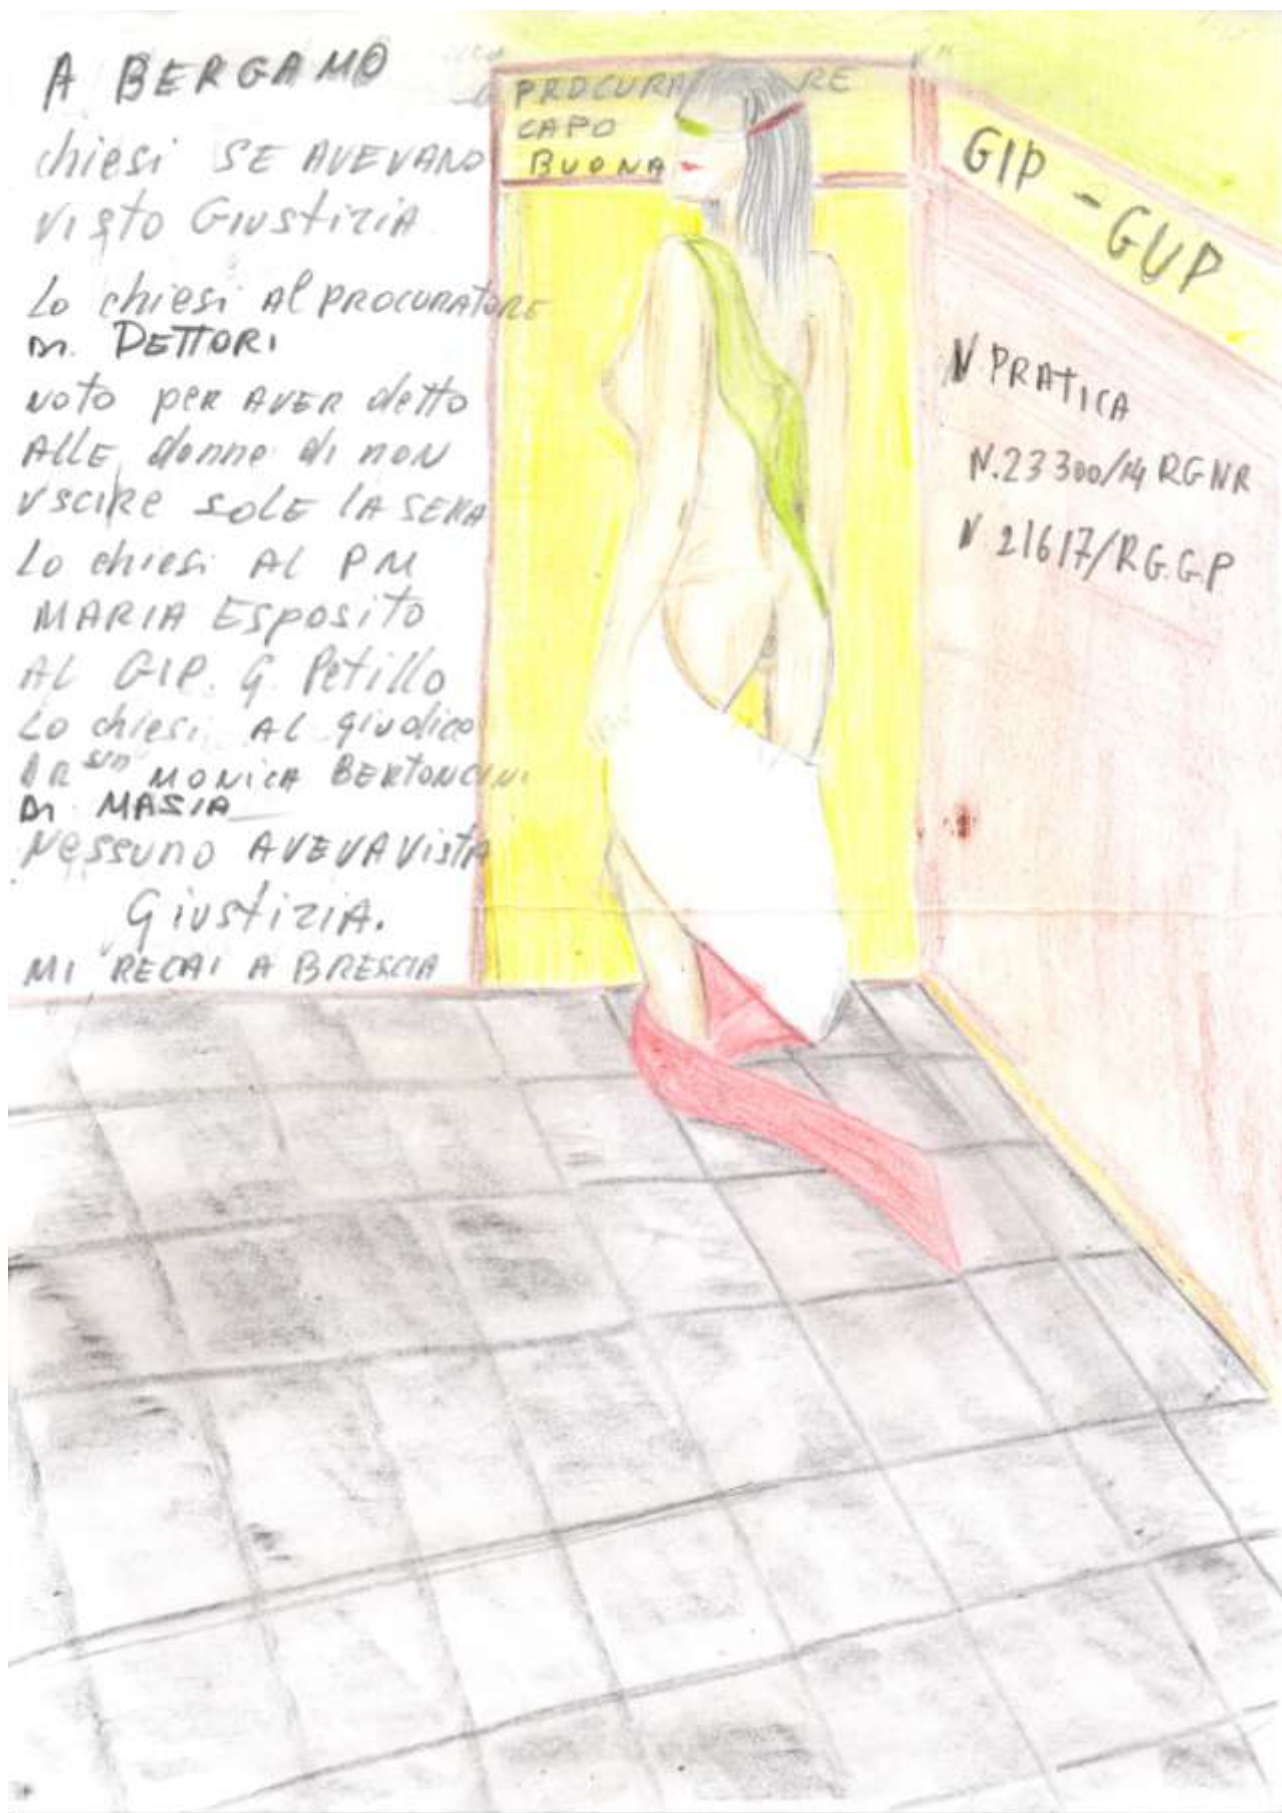 A BERGAMO
chiesi SE AVEVANO
visto Giustizia
Lo chiesi Al PROCURATORE
Dr. DETTORI
noto per AVER detto
AllE donne di non
uscire sole lA SERA
Lo chiesi AL PM
MARIA Esposito
AL GIP. G. Petillo
Lo chiesi AL giudice
DR ssa MONICA BERTONCINI
Dr MASIA
Nessuno AVEVA Vista
Giustizia.
MI RECAI A BRESCIA
PROCURA RE
CAPO
BUONA
GIP - GUP
N PRATICA
N.23300/14 RGNR
N 21617/RG.G.P